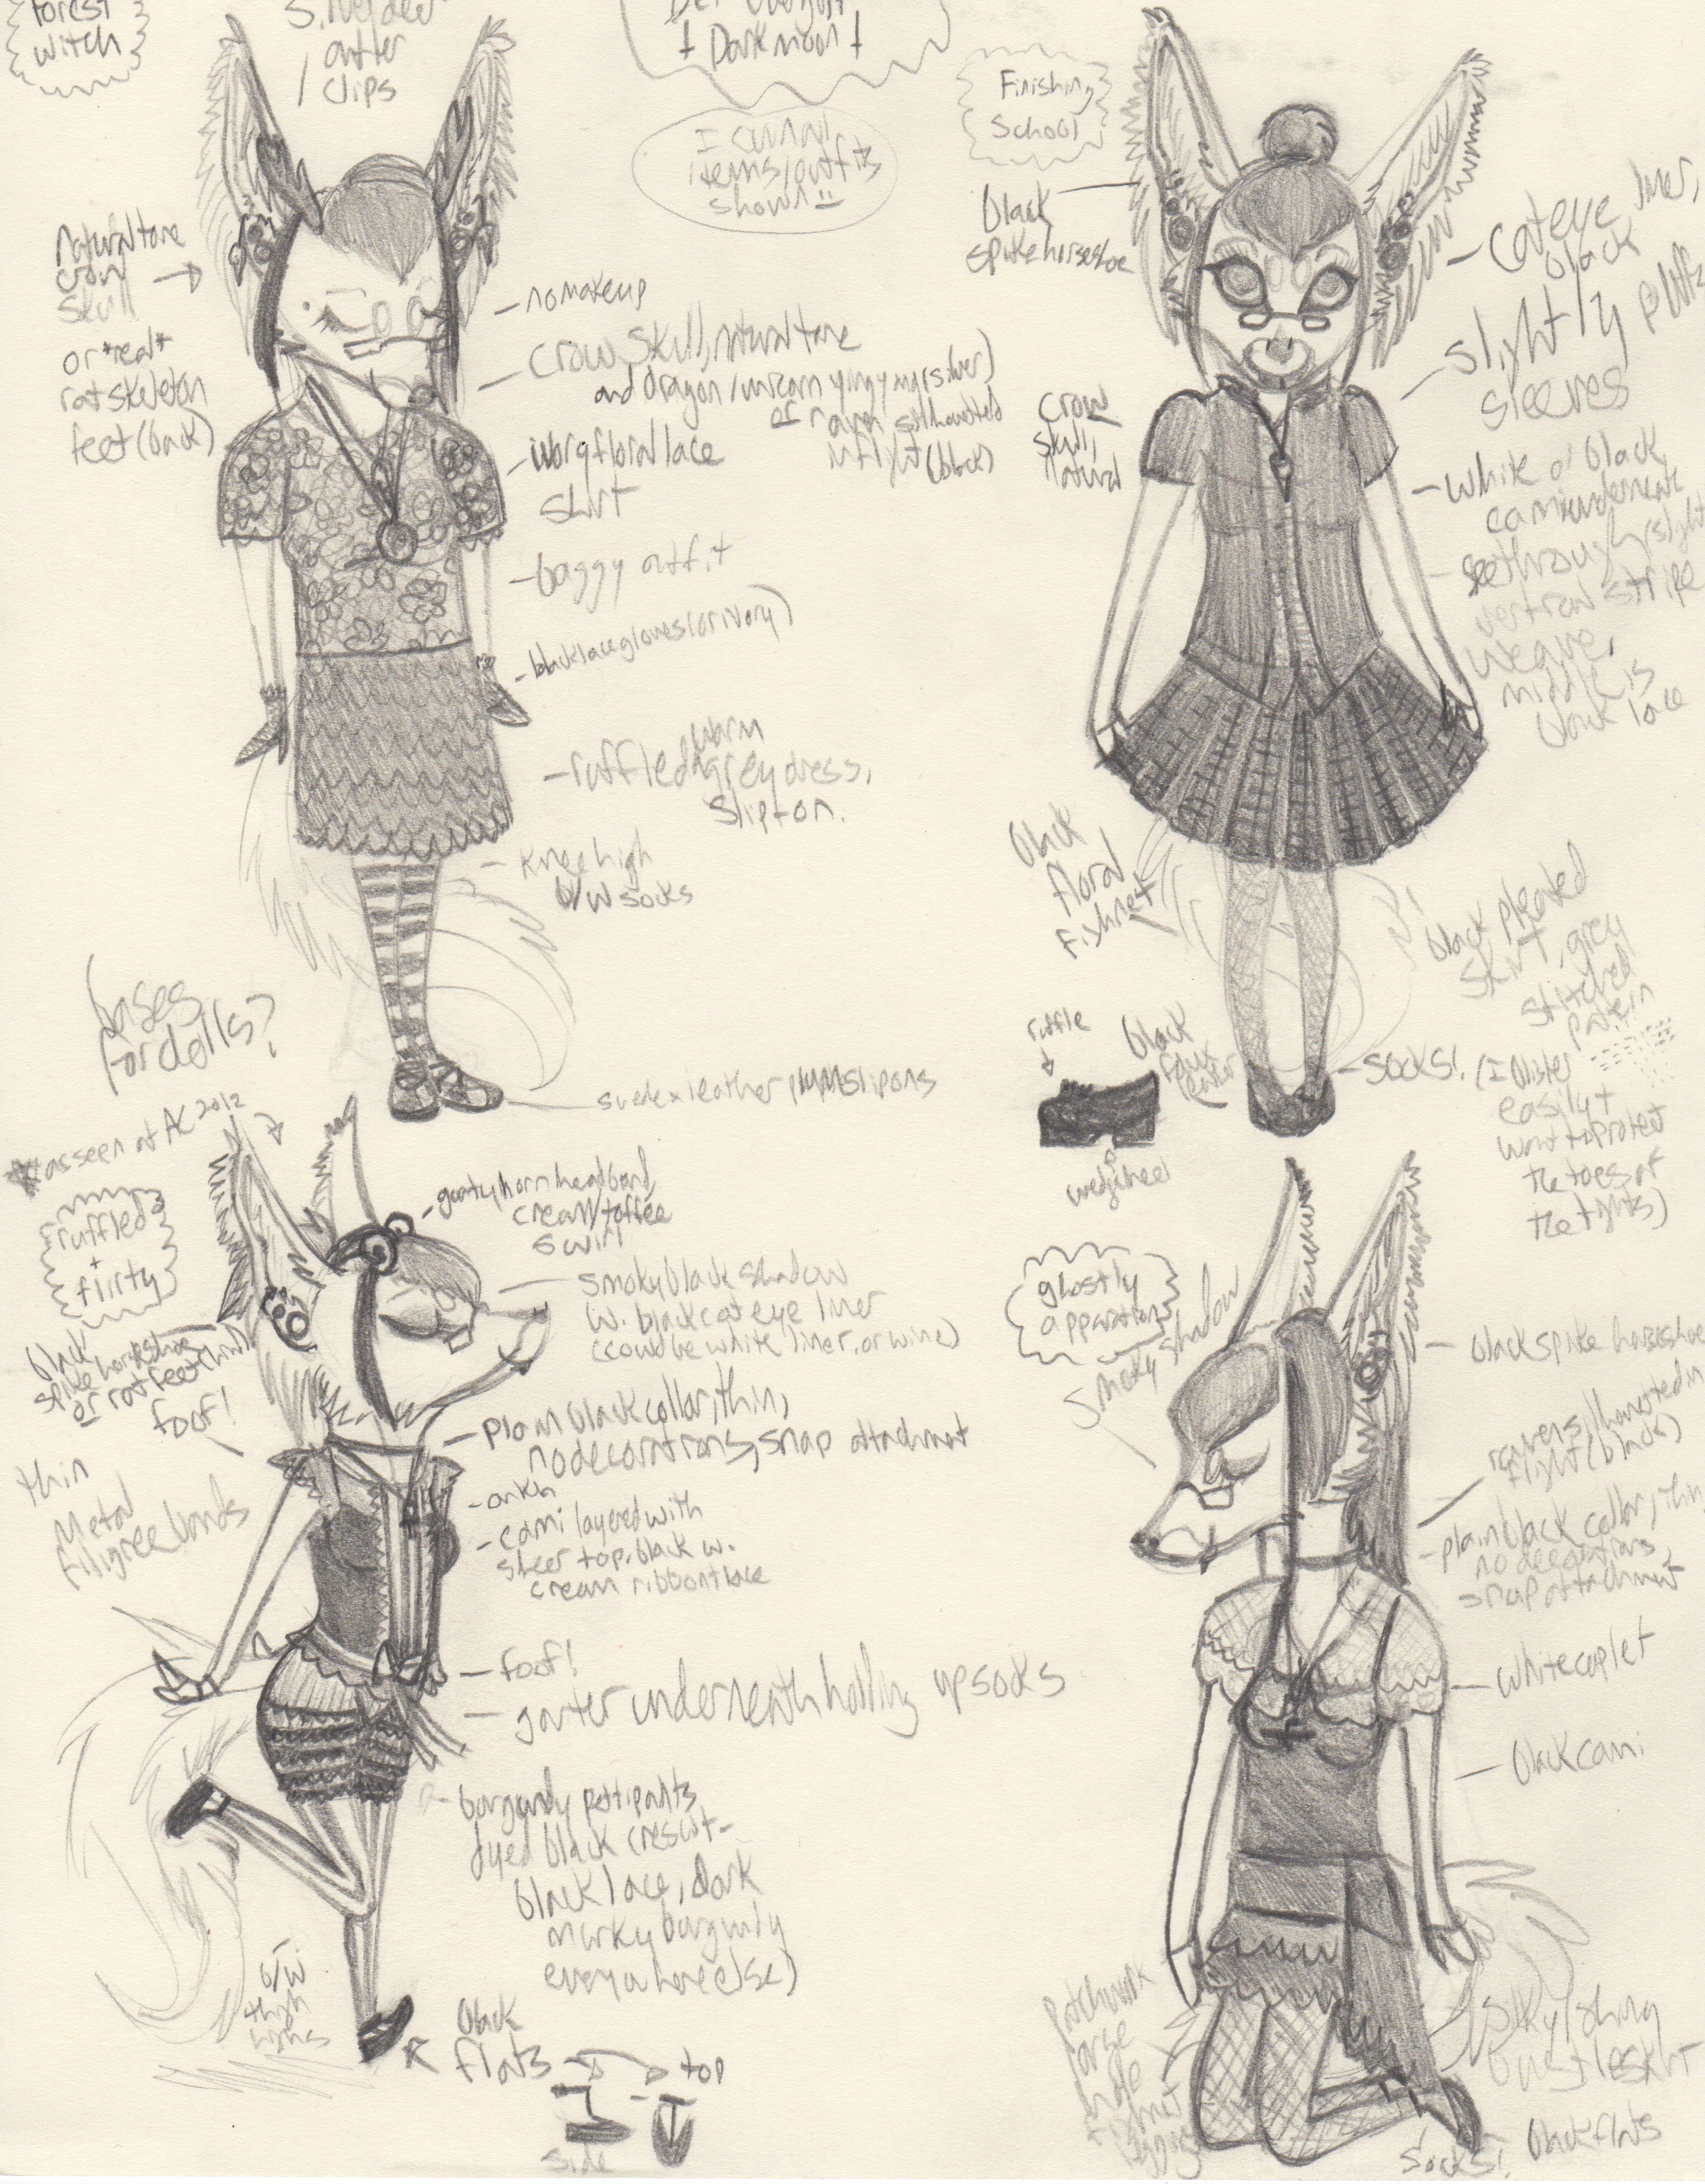 forest
witch
antler
clips
Dark moon
I own all
items/outfits
shown
Finishing
School
natural tone
crow
skull
or *real*
rat skeleton
feet (back)
- no makeup
- crow skull, natural tone
and dragon/unicorn yingyang (silver)
or raven silhouetted
inflight (black)
- ivory floral lace
shirt
- baggy outfit
- black lace gloves (or ivory)
- ruffled warm grey dress,
slip on.
- knee high
b/w socks
suede x leather plum slipons
bases
for dolls?
black
spike horseshoe
crow
skull,
natural
- cateye liner,
black
- slightly puffy
sleeves
- white or black
cami underneath
- see through/slight
vertical stripe
weave,
middle is
black lace
black
floral
fishnet
black pleated
skirt, grey
stitched
pattern
ruffle
black
faux
leather
wedge heel
- socks! (I blister
easily +
want to protect
the toes of
the tights)
*as seen at AC 2012
ruffled
+
flirty
goaty horn headband,
cream/toffee
swirl
smoky black shadow
w. black cateye liner
(could be white liner, or wine)
black
spike horseshoe
or rat feet
foof!
thin
metal
filigree bands
- plain black collar, thin,
no decorations, snap attachment
- ankh
- cami layered with
sheer top, black w.
cream ribbon + lace
- foof!
- garter underneath holding up socks
- burgundy pettipants
dyed black
black lace, dark
murky burgundy
everywhere else)
b/w
thigh
highs
black
flats
top
side
ghostly
apparation
smoky shadow
- black spike horseshoe
raven silhouetted in
flight (black)
- plain black collar, thin
no decorations,
snap attachment
- white caplet
- black cami
patchwork
large
hole
fishnet
leggings
silky/shiny
bustle skirt
socks!
black flats